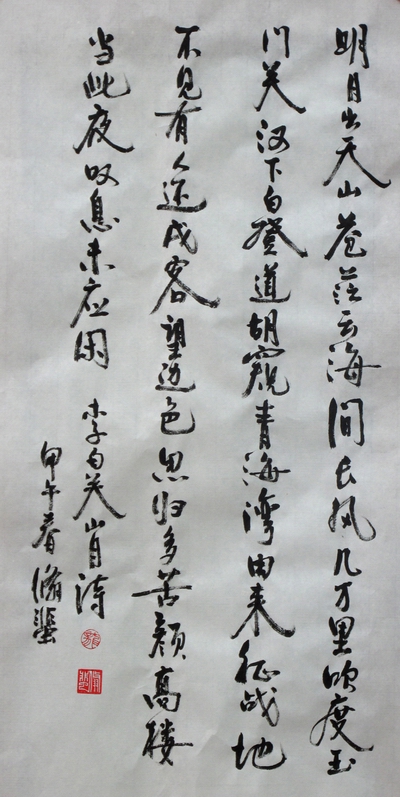 明月出天山苍茫云海间长风几万里吹度玉
门关汉下白登道胡窥青海湾由来征战地
不见有人还戍客望边色思归多苦颜高楼
当此夜叹息未应闲 李白关山月诗
甲午春